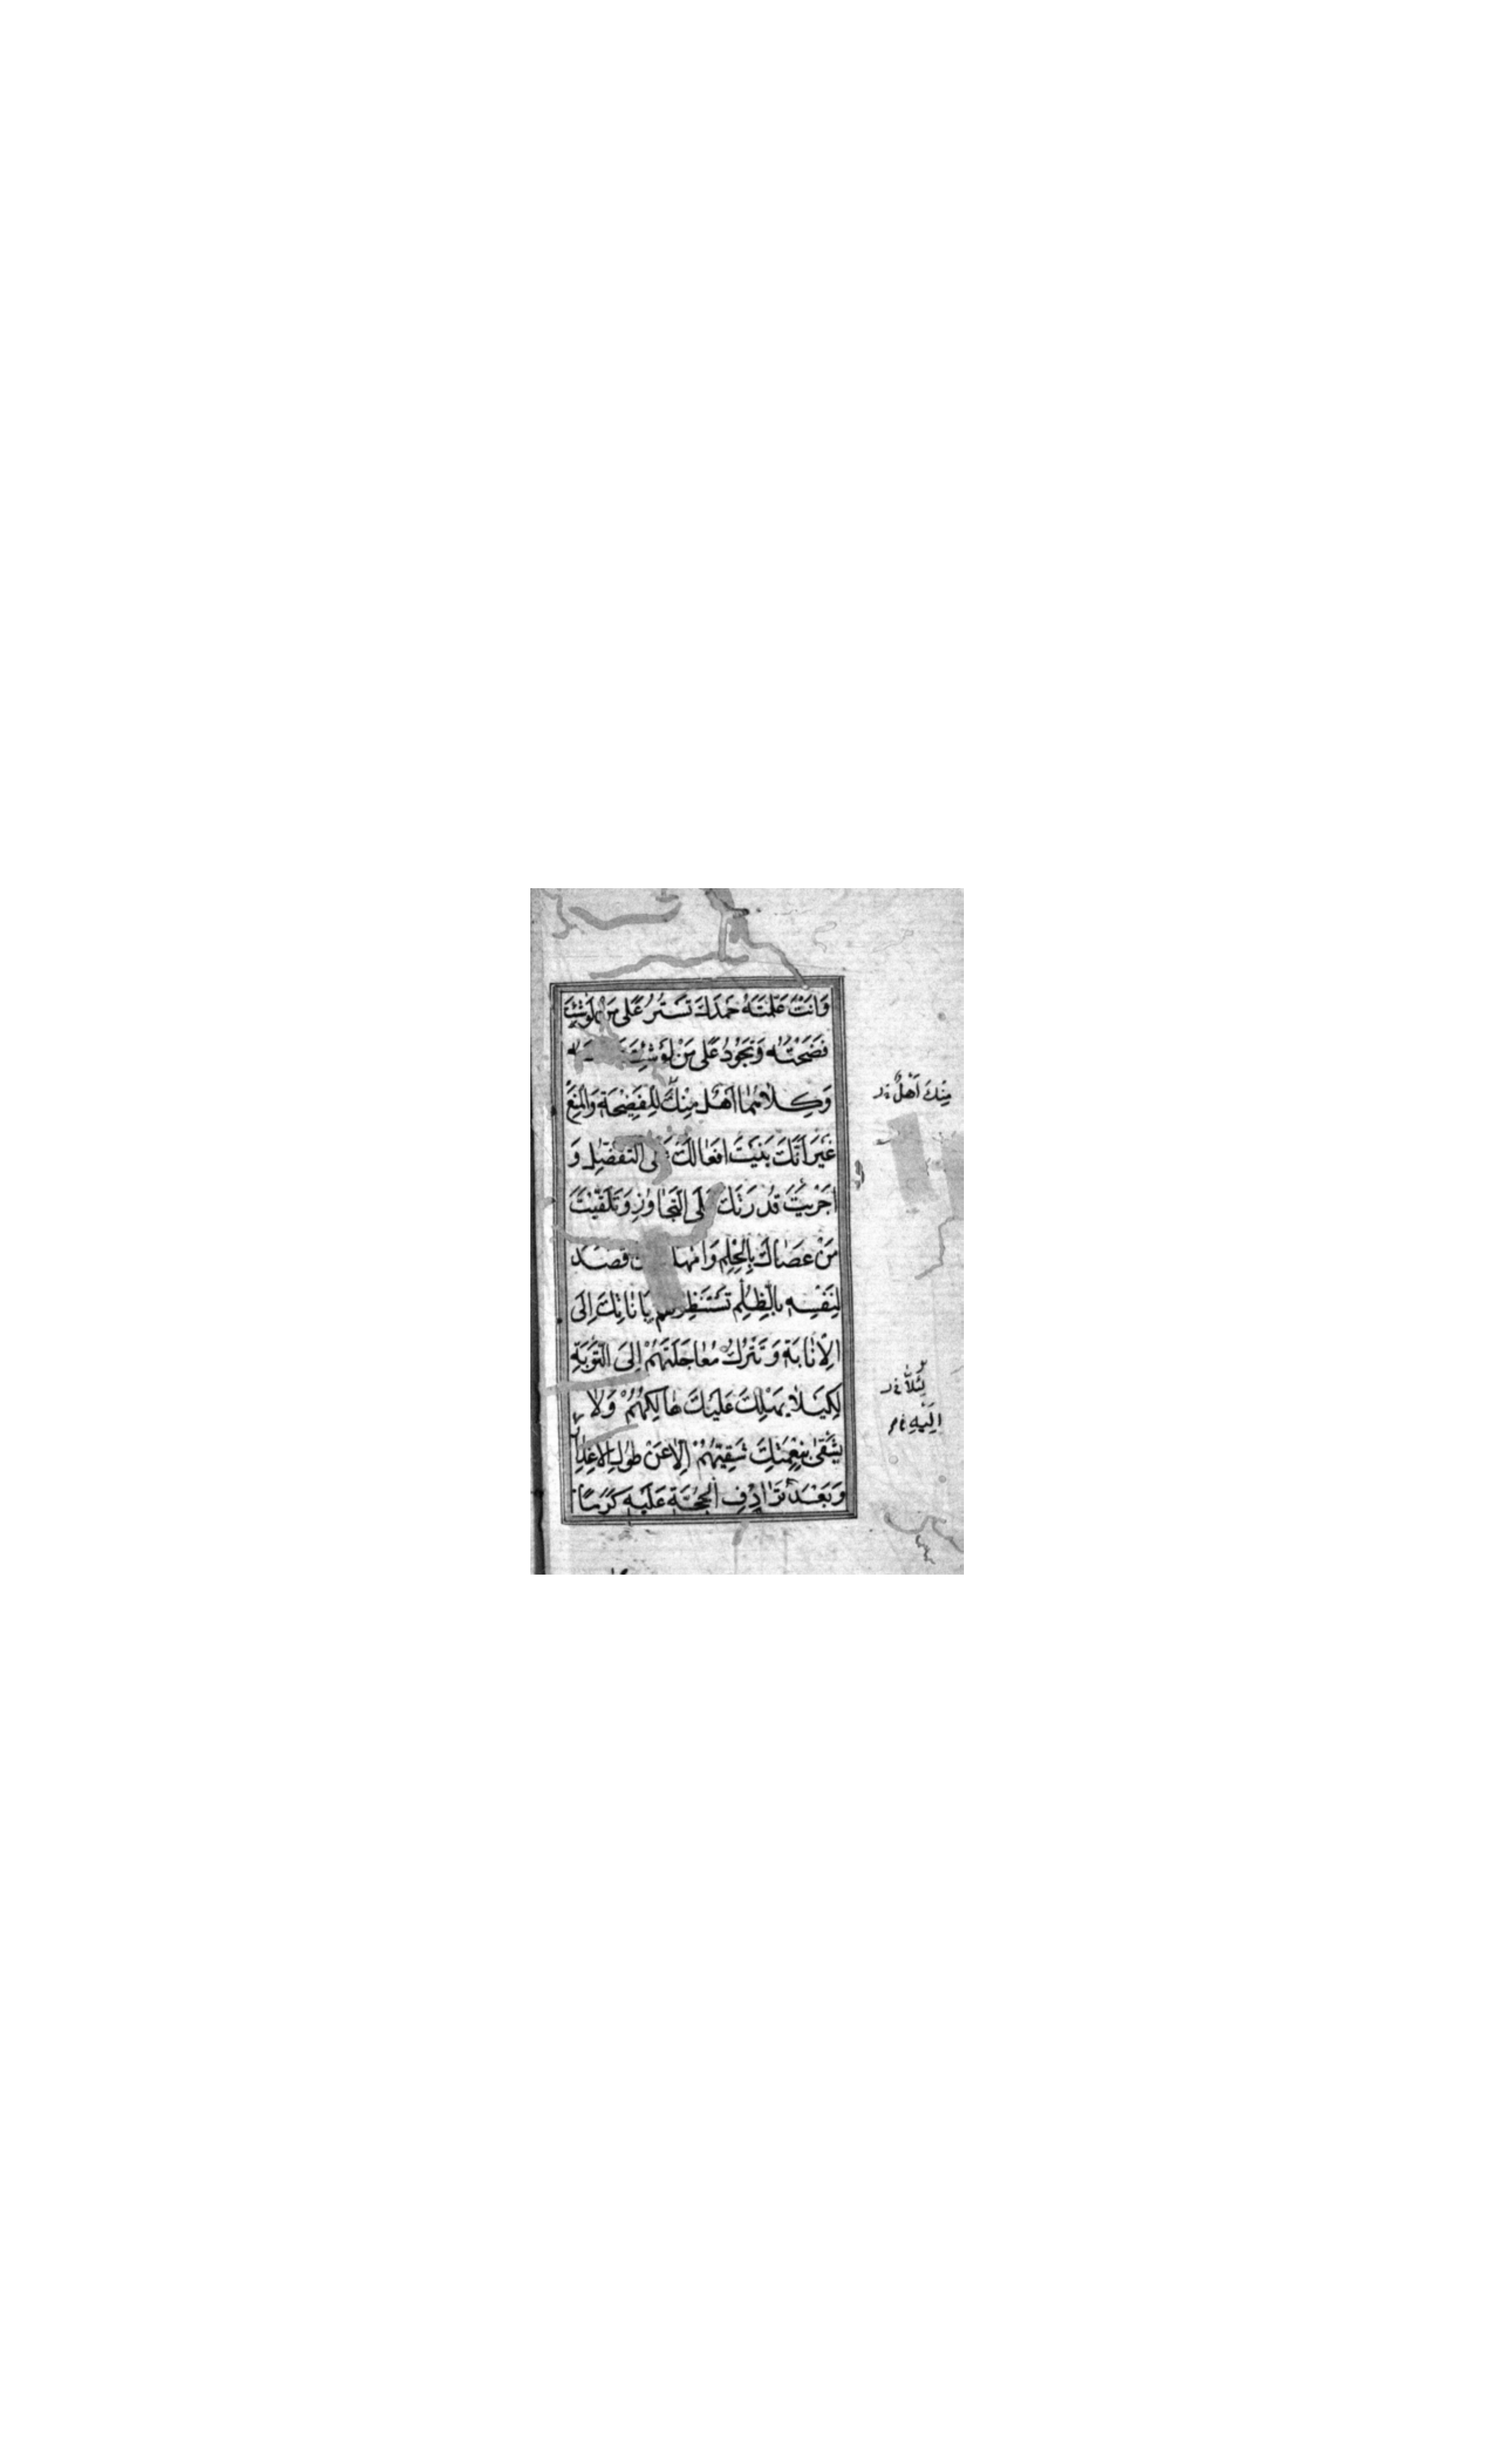 وَاَنْتَ عَلَّمْتَهُ حَمْدَكَ تَسْتُرُ عَلٰى مَنْ لَوْ شِئْتَ
فَضَحْتَهُ وَتَجُوْدُ عَلٰى مَنْ لَوْ شِئْتَ
وَكِلَاهُمَا اَهْلٌ مِنْكَ لِلْفَضِيْحَةِ وَالْمَنْعِ
غَيْرَ اَنَّكَ بَنَيْتَ اَفْعَالَكَ عَلَى التَّفَضُّلِ وَ
اَجْرَيْتَ قُدْرَتَكَ عَلَى التَّجَاوُزِ وَتَلَقَّيْتَ
مَنْ عَصَاكَ بِالْحِلْمِ وَاَمْهَلْتَ مَنْ قَصَدَ
لِنَفْسِهِ بِالظُّلْمِ تَسْتَنْظِرُهُمْ بِاَنَاتِكَ اِلَى
الْاِنَابَةِ وَتَتْرُكُ مُعَاجَلَتَهُمْ اِلَى التَّوْبَةِ
لِكَيْلَا يَهْلِكَ عَلَيْكَ هَالِكُهُمْ وَلَا
يَشْقٰى بِنِعْمَتِكَ شَقِيُّهُمْ اِلَّا عَنْ طُوْلِ الْاِعْذَارِ
وَبَعْدَ تَرَادُفِ الْحُجَّةِ عَلَيْهِ كَرَمًا
مِنْكَ اَهْلٌ
لِئَلَّا
اِلَيْهِ